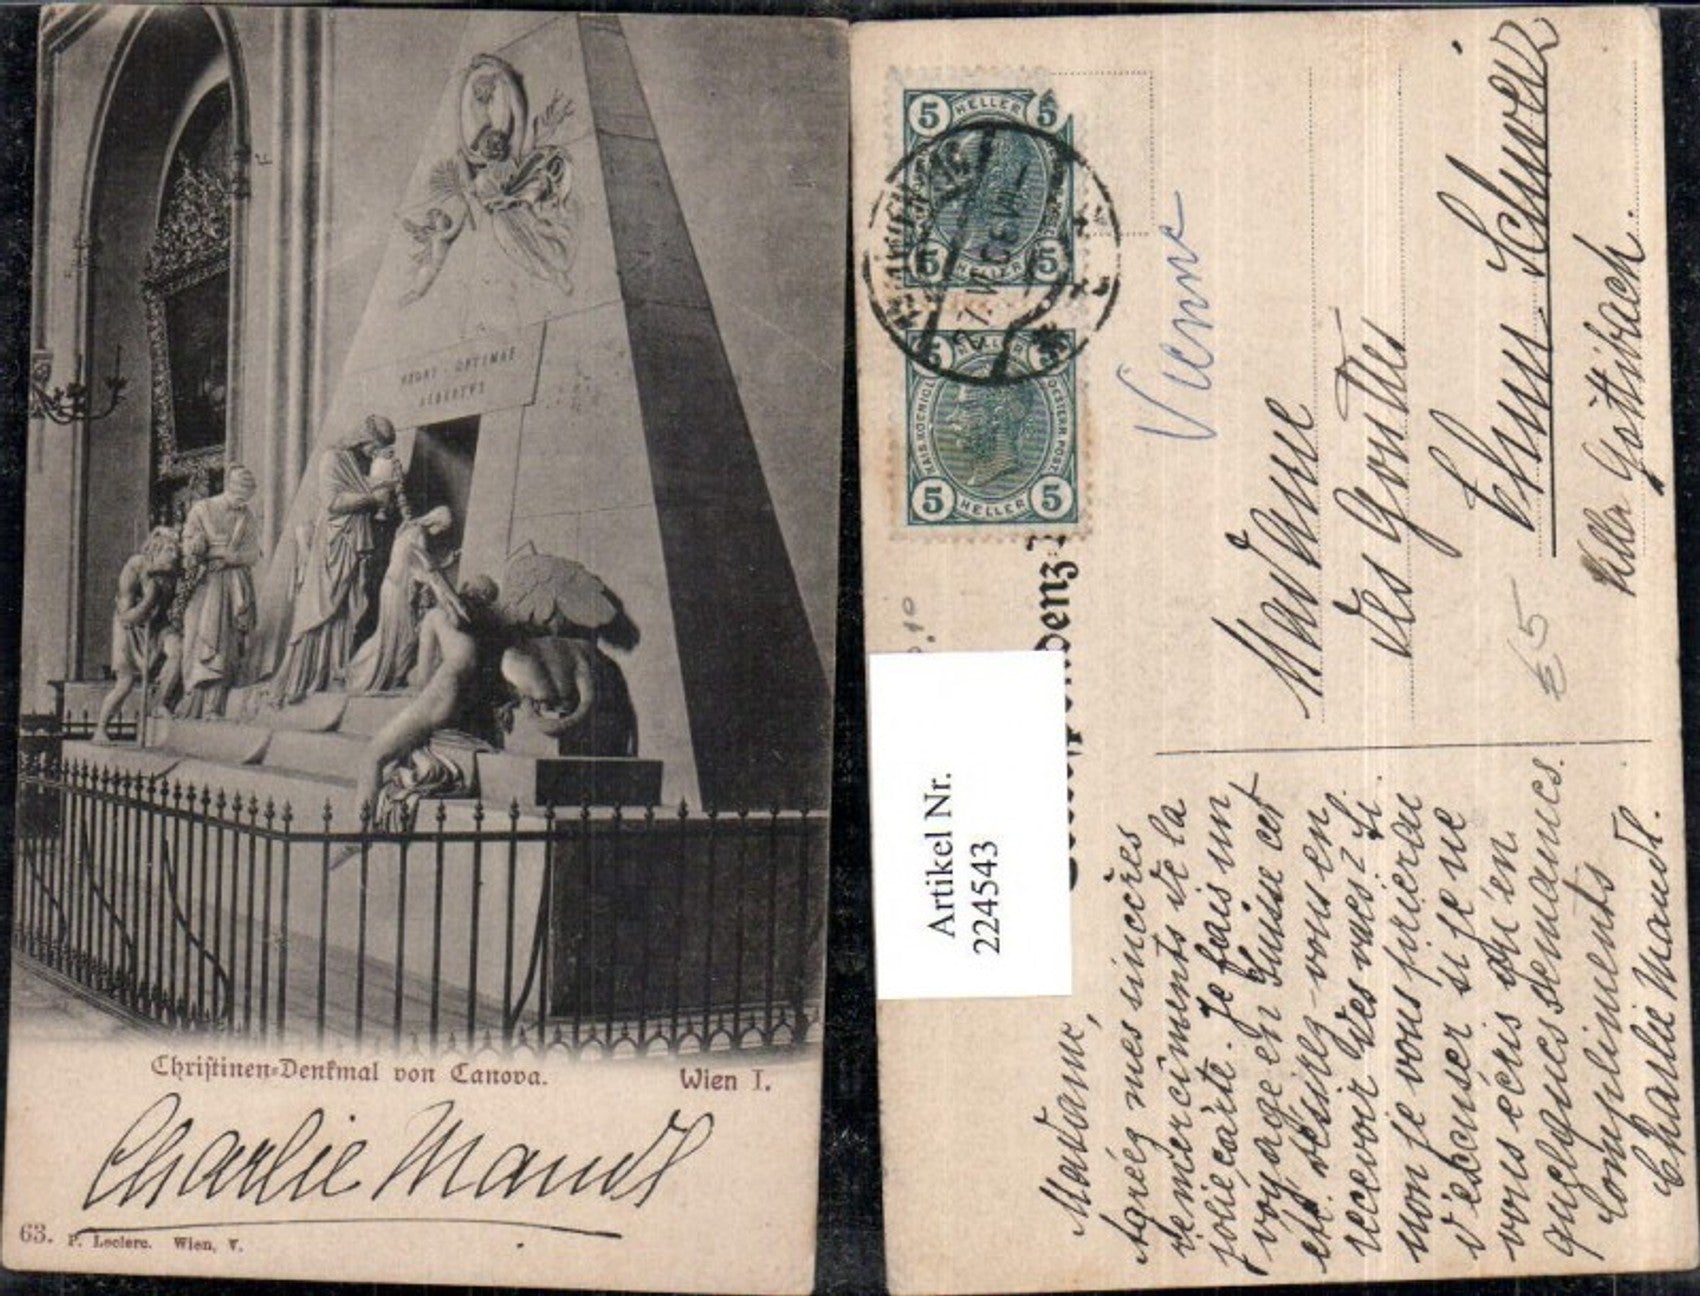 UXORI OPTIMAE
ALBERTVS
Christinen-Denkmal von Canova.
Wien I.
Charlie Mandl
63.
P. Leclerc. Wien, V.
5 HELLER 5
5 HELLER 5
5 HELLER 5
KAIS.KÖNIGL. OESTERR.POST.
5 HELLER 5
Vienne
Madame
Chur Schweiz
Villa Göttibach.
€5
Artikel Nr.
224543
Madame,
Agréez mes sincères
remerciments de la
jolie carte. Je fais un
voyage en Suisse cet
été. désirez-vous en
recevoir des vues? Si
non je vous prierai
d'excuser si je ne
vous écris qu'en
quelques semaines.
Compliments
Charlie Mandl.